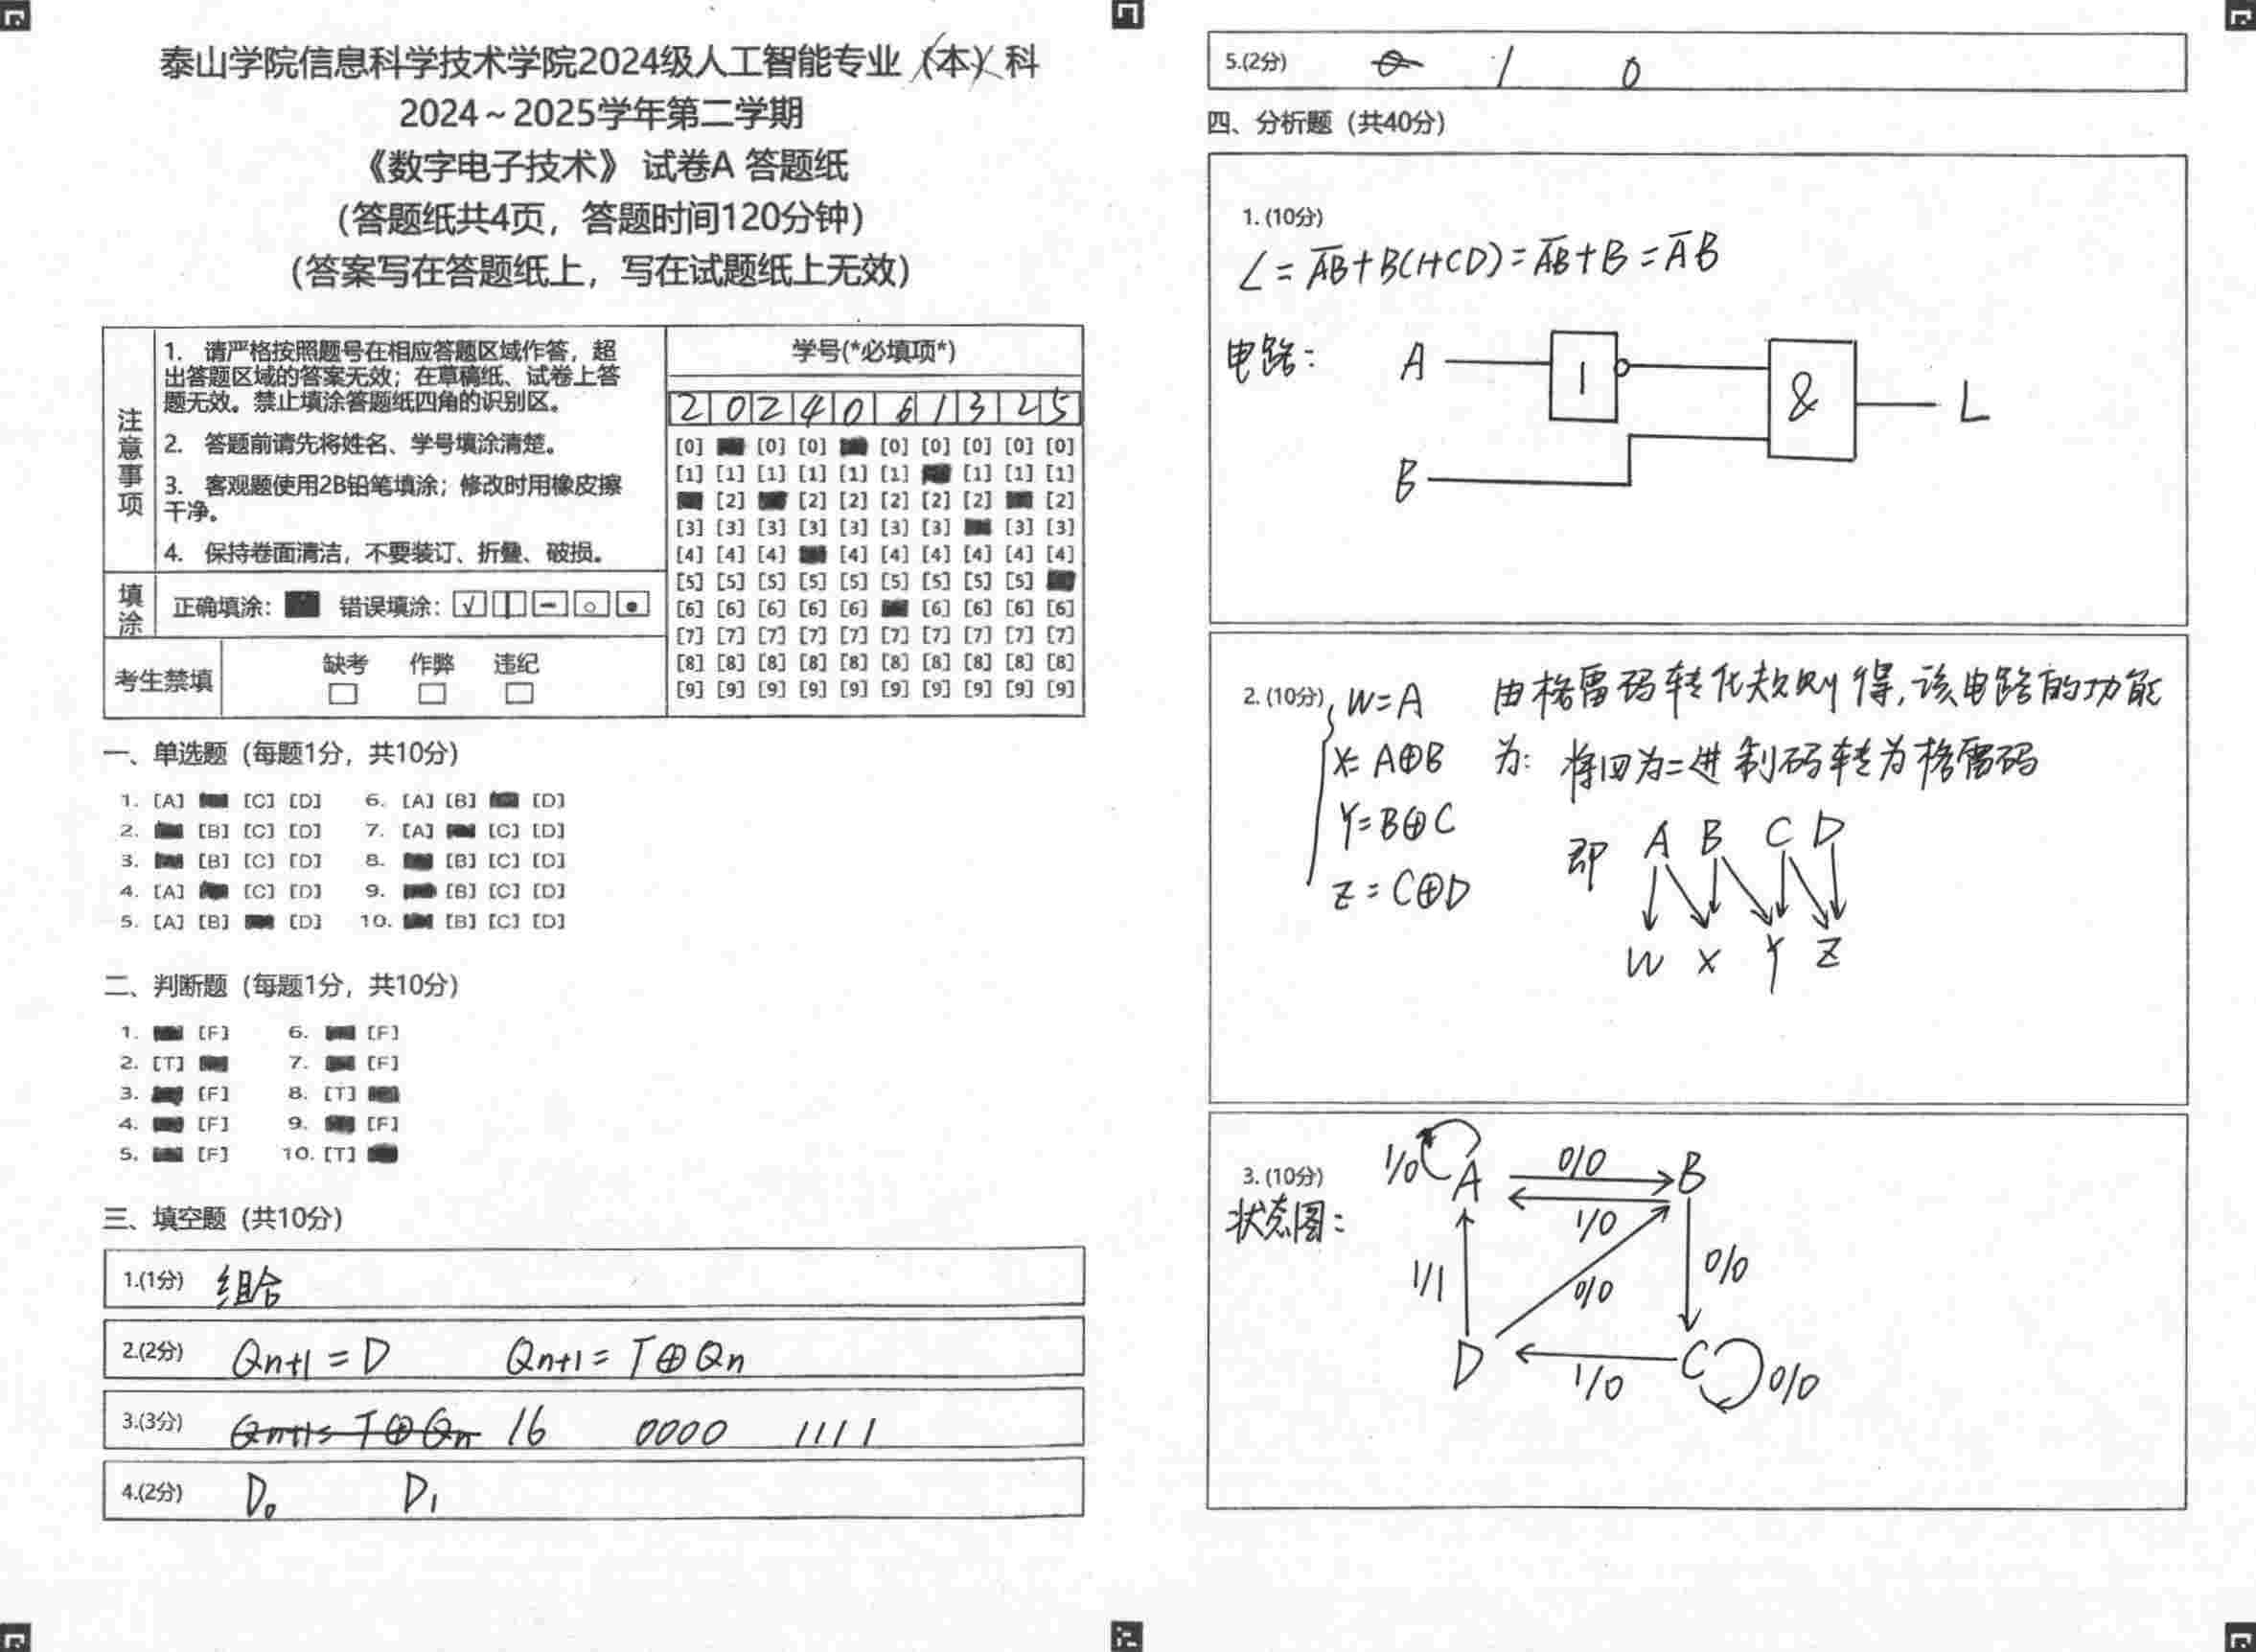 泰山学院信息科学技术学院2024级人工智能专业（本）科
2024～2025学年第二学期
《数字电子技术》 试卷A 答题纸
（答题纸共4页，答题时间120分钟）
（答案写在答题纸上，写在试题纸上无效）
注意事项
1. 请严格按照题号在相应答题区域作答，超
出答题区域的答案无效；在草稿纸、试卷上答
题无效。禁止填涂答题纸四角的识别区。
2. 答题前请先将姓名、学号填涂清楚。
3. 客观题使用2B铅笔填涂；修改时用橡皮擦
干净。
4. 保持卷面清洁，不要装订、折叠、破损。
填涂
正确填涂： 错误填涂：
考生禁填
缺考 作弊 违纪
学号(*必填项*)
2 0 2 4 0 6 1 3 2 5
[0] [0] [0] [0] [0] [0] [0] [0]
[1] [1] [1] [1] [1] [1] [1] [1] [1]
[2] [2] [2] [2] [2] [2] [2]
[3] [3] [3] [3] [3] [3] [3] [3] [3]
[4] [4] [4] [4] [4] [4] [4] [4] [4]
[5] [5] [5] [5] [5] [5] [5] [5] [5]
[6] [6] [6] [6] [6] [6] [6] [6] [6]
[7] [7] [7] [7] [7] [7] [7] [7] [7] [7]
[8] [8] [8] [8] [8] [8] [8] [8] [8] [8]
[9] [9] [9] [9] [9] [9] [9] [9] [9] [9]
一、单选题（每题1分，共10分）
1. [A] [C] [D] 6. [A] [B] [D]
2. [B] [C] [D] 7. [A] [C] [D]
3. [B] [C] [D] 8. [B] [C] [D]
4. [A] [C] [D] 9. [B] [C] [D]
5. [A] [B] [D] 10. [B] [C] [D]
二、判断题（每题1分，共10分）
1. [F] 6. [F]
2. [T] 7. [F]
3. [F] 8. [T]
4. [F] 9. [F]
5. [F] 10. [T]
三、填空题（共10分）
1.(1分) 组合
2.(2分) Qn+1 = D Qn+1 = T⊕Qn
3.(3分) Qn+1= T⊕Qn 16 0000 1111
4.(2分) D₀ D₁
5.(2分) 1 0
四、分析题（共40分）
1. (10分)
L = A̅B+B(1+CD) = A̅B+B = A̅B
电路：
A 1 & L
B
2. (10分) W=A 由格雷码转化规则得，该电路的功能
X= A⊕B 为： 将四为二进制码转为格雷码
Y= B⊕C
Z = C⊕D
即 A B C D
W X Y Z
3. (10分)
状态图：
1/0 A 0/0 B
1/0
1/1 0/0 0/0
D 1/0 C 0/0